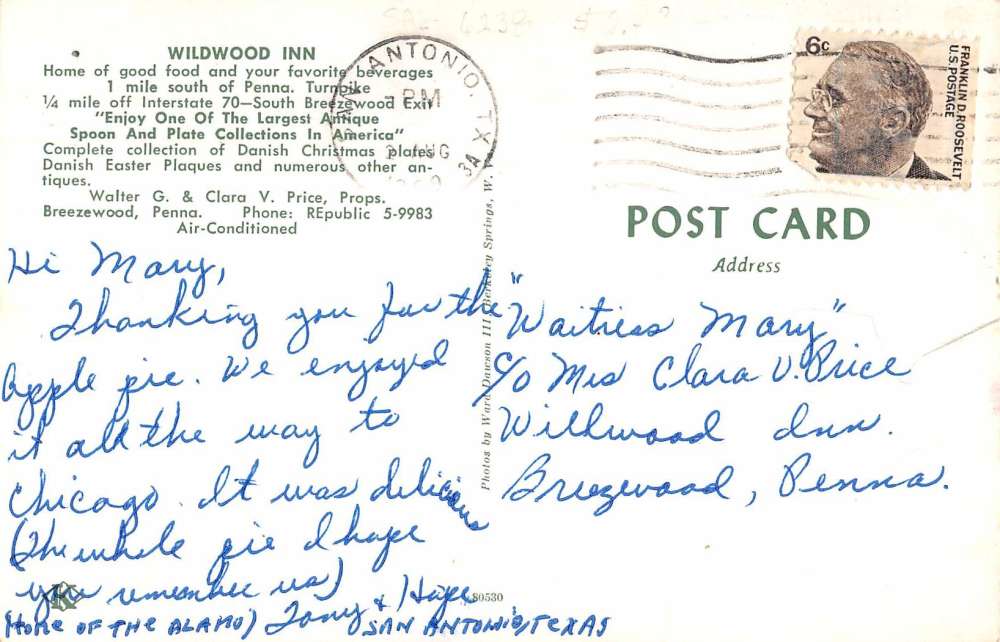 WILDWOOD INN
Home of good food and your favorite beverages
1 mile south of Penna. Turnpike
1/4 mile off Interstate 70—South Breezewood Exit
"Enjoy One Of The Largest Antique
Spoon And Plate Collections In America"
Complete collection of Danish Christmas plates
Danish Easter Plaques and numerous other an-
tiques.
Walter G. & Clara V. Price, Props.
Breezewood, Penna. Phone: REpublic 5-9983
Air-Conditioned
Hi Mary,
Thanking you for the
apple pie. We enjoyed
it all the way to
Chicago. It was delicious
(The whole pie I hope
you remember us)
Tony & Hope
Home OF THE ALAMO) SAN ANTONIO, TEXAS
Photos by Ward Dawson III Berkeley Springs, W.
K
80530
SAN ANTONIO, TX
PM
AUG
6c
FRANKLIN D. ROOSEVELT
U.S. POSTAGE
POST CARD
Address
"Waitress Mary"
c/o Mrs Clara V. Price
Willwood Inn.
Breezewood, Penna.